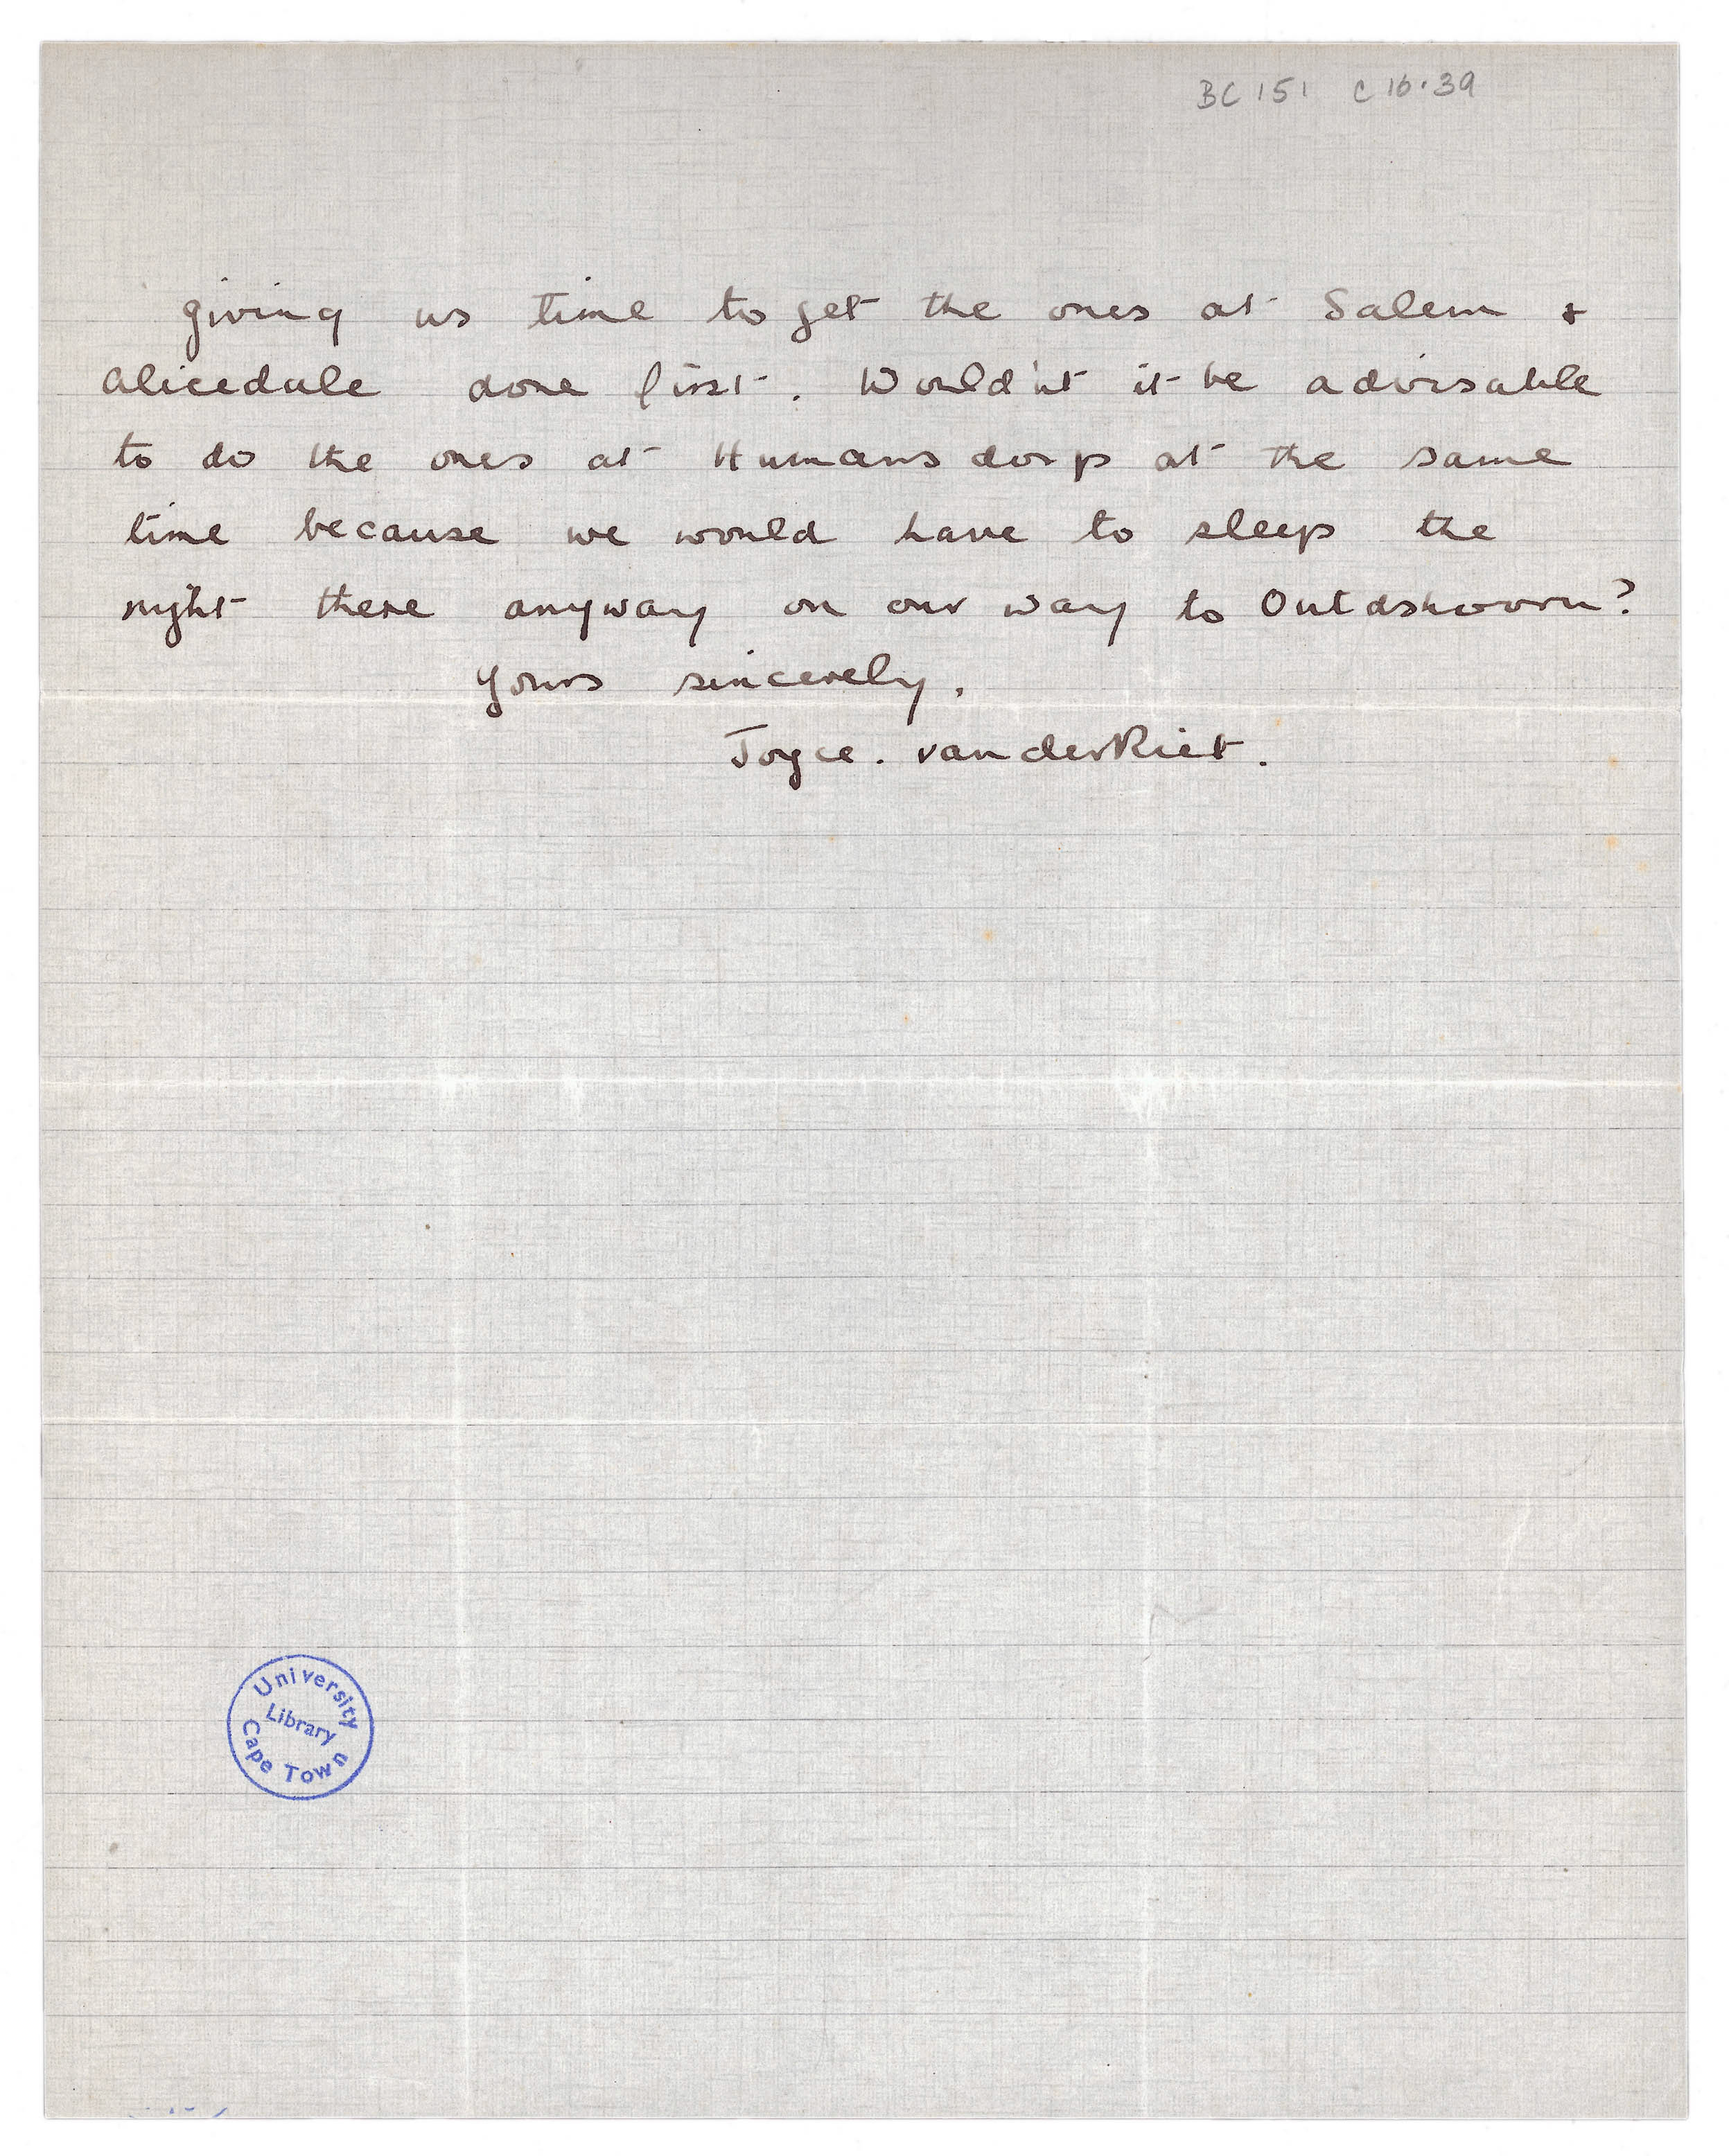 BC 151 C 16.39
giving us time to get the ones at Salem &
Alicedale done first. Would'nt it be advisable
to do the ones at Humansdorp at the same
time because we would have to sleep the
night there anyway on our way to Outdshoorn?
Yours sincerely,
Joyce. van der Riet.
University
Library
Cape Town